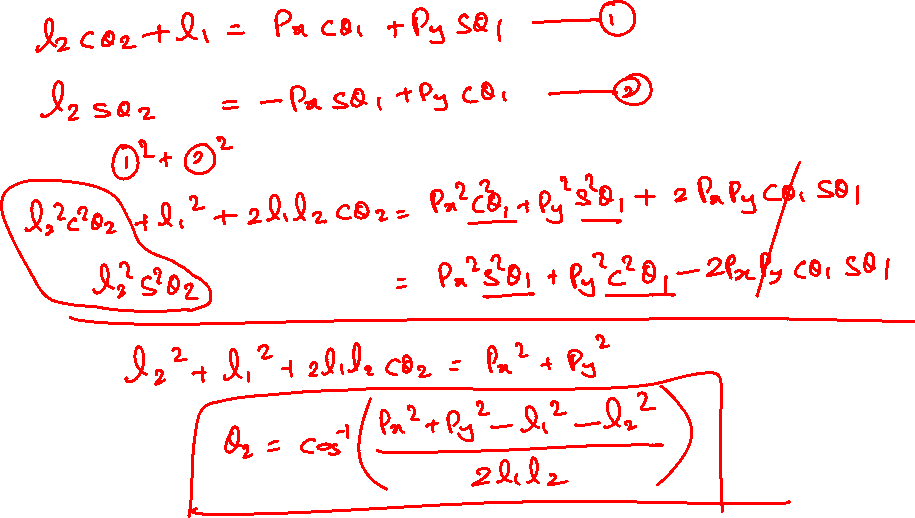 l₂ cθ₂ + l₁ = Px cθ₁ + Py sθ₁ — ①
l₂ sθ₂ = −Px sθ₁ + Py cθ₁ — ②
①² + ②²
l₂²c²θ₂ + l₁² + 2l₁l₂ cθ₂ = Px²c²θ₁ + Py²s²θ₁ + 2PxPy cθ₁ sθ₁
l₂²s²θ₂ = Px²s²θ₁ + Py²c²θ₁ − 2PxPy cθ₁ sθ₁
l₂² + l₁² + 2l₁l₂ cθ₂ = Px² + Py²
θ₂ = cos⁻¹ ( (Px² + Py² − l₁² − l₂²) / 2l₁l₂ )